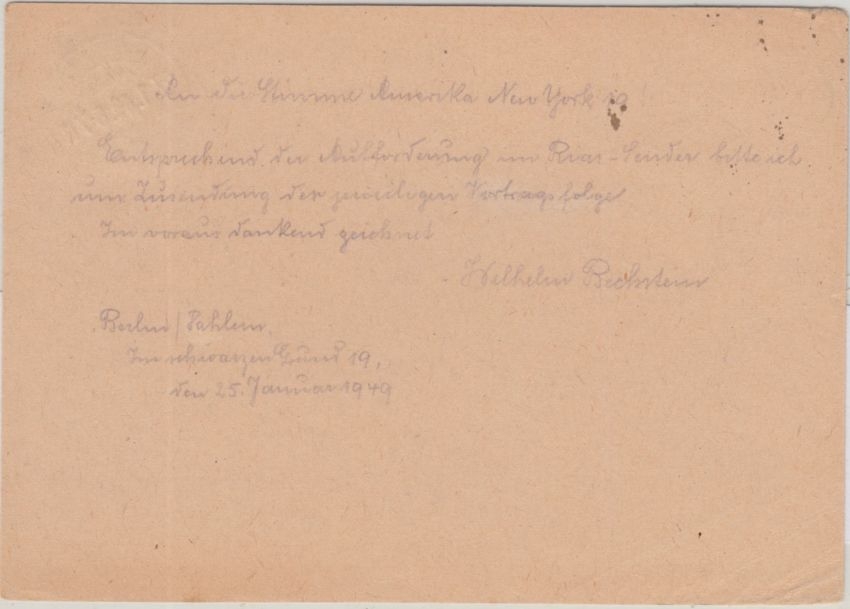 An die Stimme Amerika New York 19!
Entsprechend der Aufforderung im Rias-Sender bitte ich
um Zusendung der jeweiligen Vortragsfolge
Im voraus dankend zeichnet
Wilhelm Bechstein
Berlin/Dahlem,
Im schwarzen Grund 19,
den 25. Januar 1949